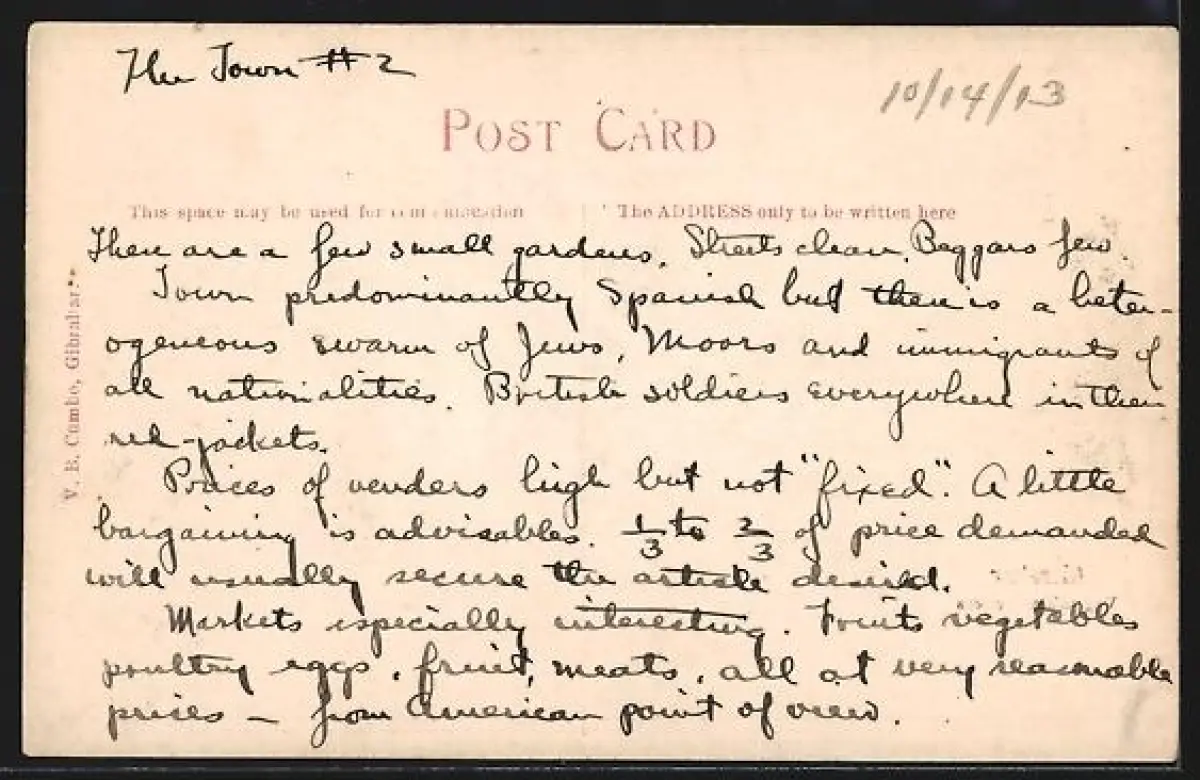 The Town #2
10/14/13
POST CARD
This space may be used for communication
The ADDRESS only to be written here
V. B. Cumbo, Gibraltar.
There are a few small gardens. Streets clean. Beggars few.
Town predominantly Spanish but there is a heter-
ogeneous swarm of Jews, Moors and immigrants of
all nationalities. British soldiers everywhere in their
red-jackets.
Prices of venders high but not "fixed". A little
bargaining is advisable. 1/3 to 2/3 of price demanded
will usually secure the article desired.
Markets especially interesting. Fruits vegetables
poultry eggs, fruit, meats, all at very reasonable
prices – from American point of view.